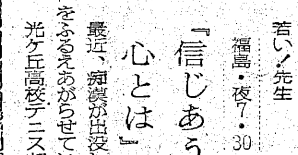 若い!先生
福島・夜7・30
『信じあう
心とは』
最近、痴漢が出没
をふるえあがらせて
光ケ丘高校テニス